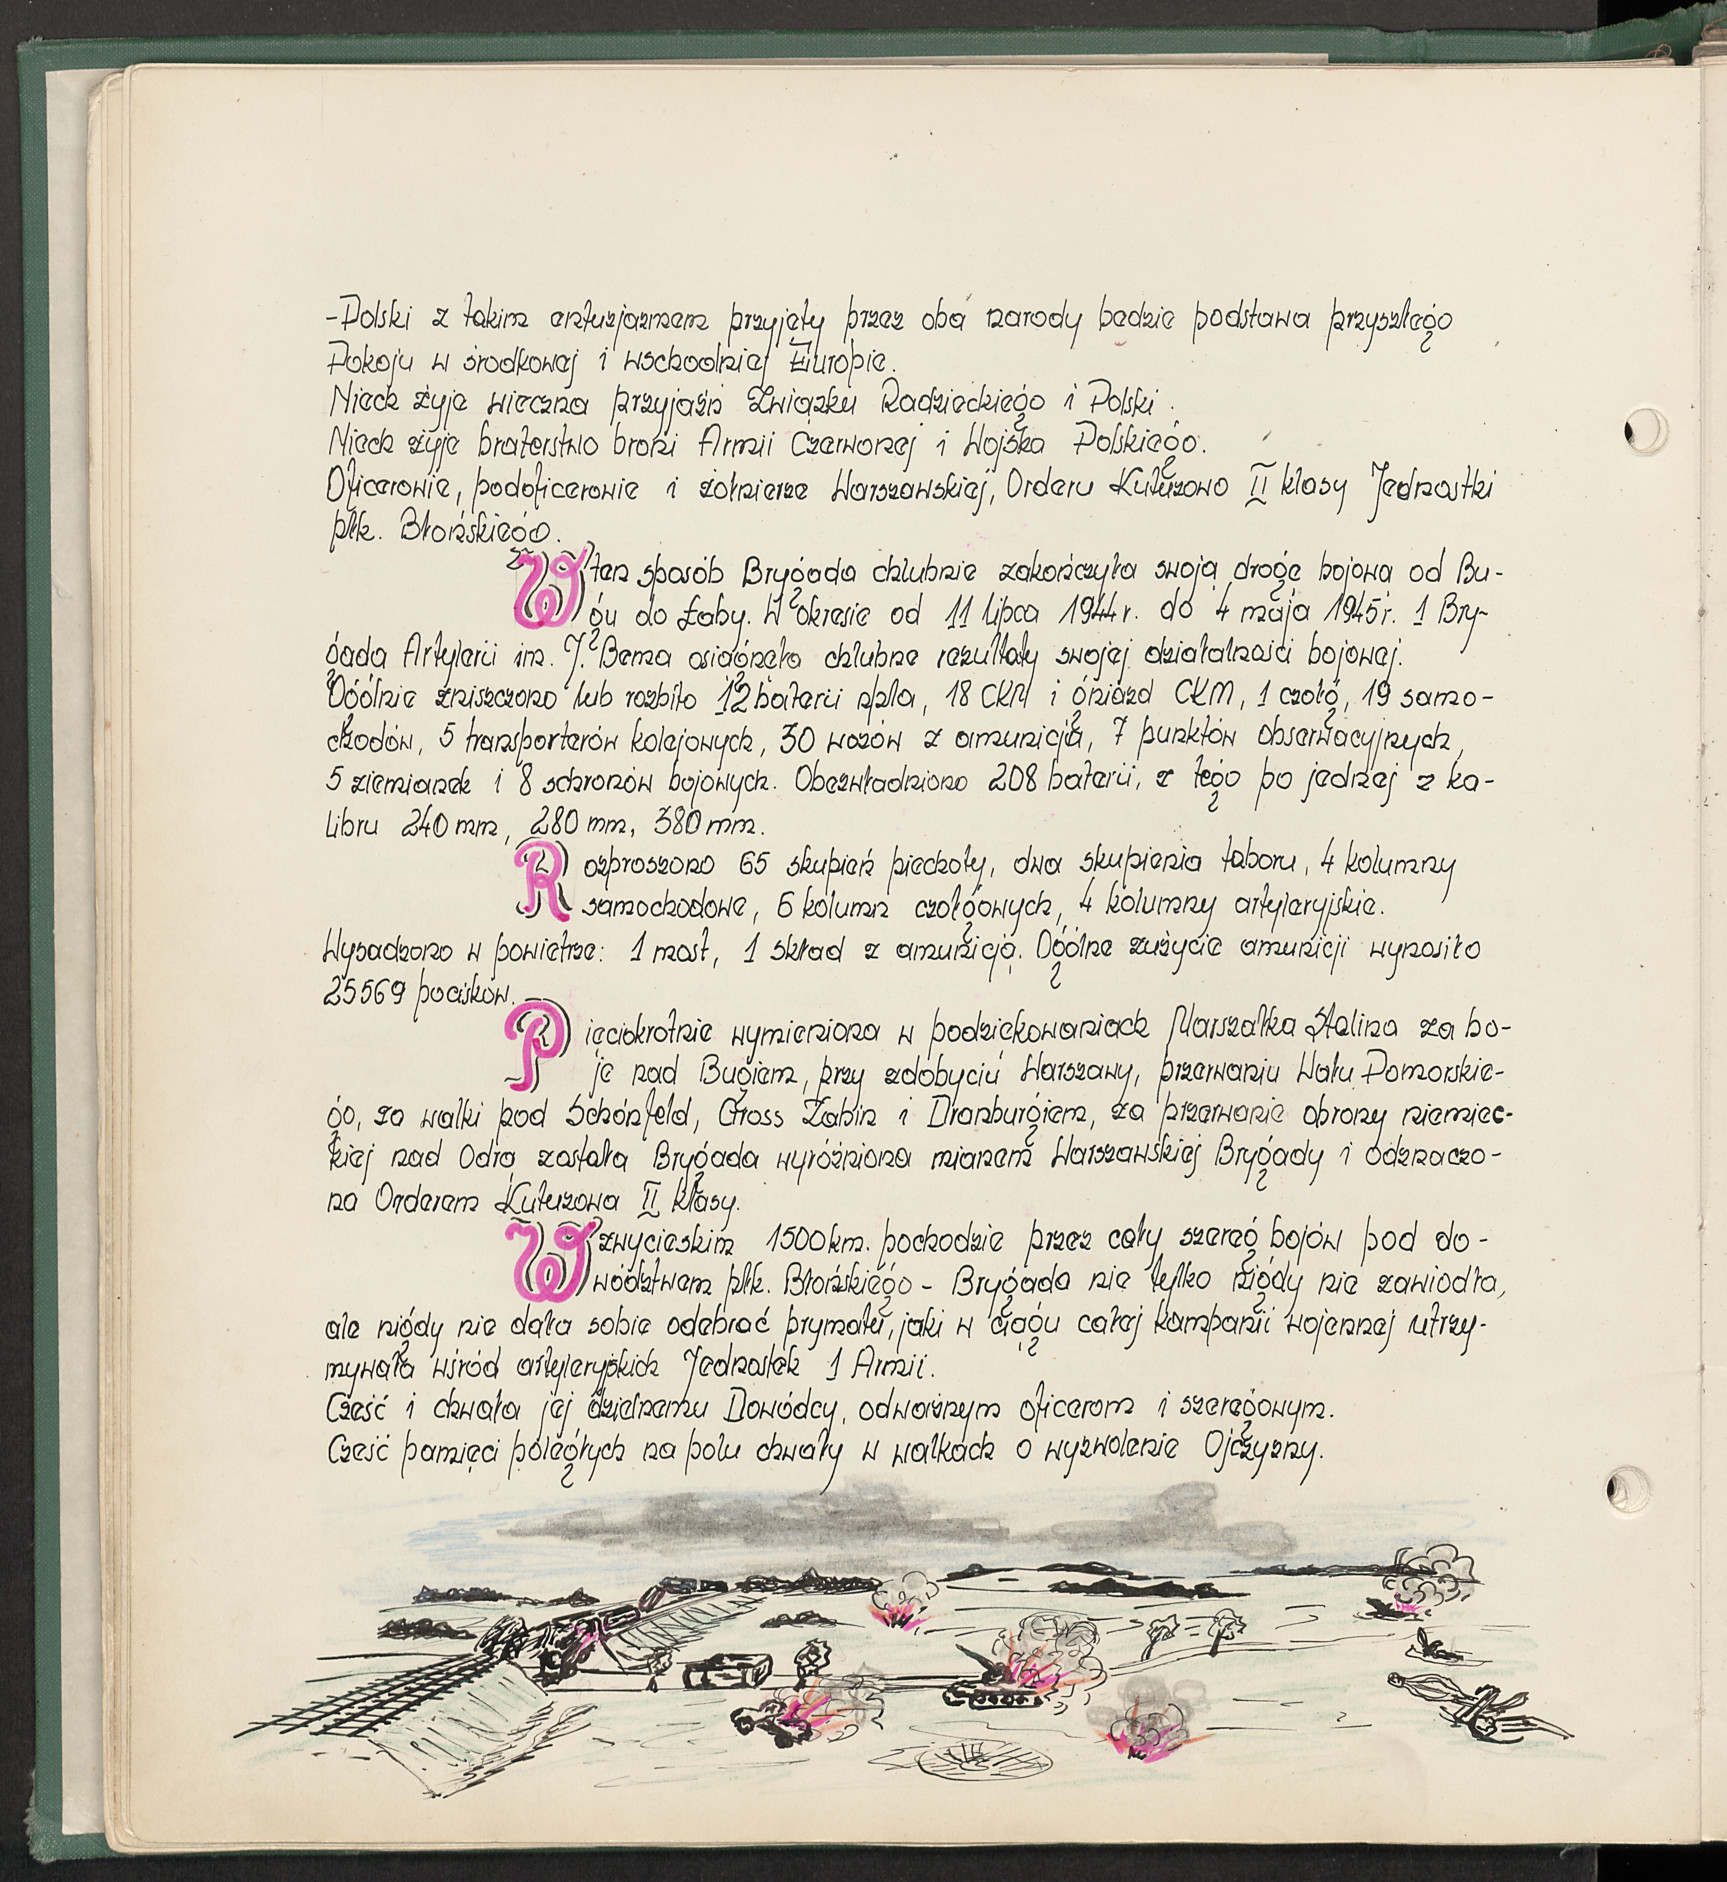 -Polski z takim entuzjazmem przyjęty przez oba narody będzie podstawa przyszłego
Pokoju w środkowej i wschodniej Europie.
Niech żyje wieczna przyjaźń Związku Radzieckiego i Polski.
Niech żyje braterstwo broni Armii Czerwonej i Wojska Polskiego.
Oficerowie, podoficerowie i żołnierze Warszawskiej, Orderu Kutuzowa II klasy Jednostki
płk. Błońskiego.
W ten sposób Brygada chlubnie zakończyła swoją drogę bojową od Bu-
gu do Łaby. W okresie od 11 lipca 1944 r. do 4 maja 1945 r. 1 Bry-
gada Artylerii im. J. Bema osiągnęła chlubne rezultaty swojej działalności bojowej.
Ogólnie zniszczono lub rozbito 12 baterii npla, 18 CKM i gniazd CKM, 1 czołg, 19 samo-
chodów, 5 transporterów kolejowych, 30 wozów z amunicją, 7 punktów obserwacyjnych,
5 ziemianek i 8 schronów bojowych. Obezwładniono 208 baterii, z tego po jednej z ka-
libru 240 mm, 280 mm, 380 mm.
Rozproszono 65 skupień piechoty, dwa skupienia taboru, 4 kolumny
samochodowe, 6 kolumn czołgowych, 4 kolumny artyleryjskie.
Wysadzono w powietrze: 1 most, 1 skład z amunicją. Ogólne zużycie amunicji wynosiło
25569 pocisków.
Pięciokrotnie wymieniona w podziękowaniach Marszałka Stalina za bo-
je nad Bugiem, przy zdobyciu Warszawy, przerwaniu Wału Pomorskie-
go, za walki pod Schönfeld, Gross Zabin i Dramburgiem, za przerwanie obrony niemiec-
kiej nad Odrą została Brygada wyróżniona mianem Warszawskiej Brygady i odznaczo-
na Orderem Kutuzowa II klasy.
W zwycięskim 1500 km. pochodzie przez cały szereg bojów pod do-
wództwem płk. Błońskiego - Brygada nie tylko nigdy nie zawiodła,
ale nigdy nie dała sobie odebrać prymatu, jaki w ciągu całej kampanii wojennej utrzy-
mywała wśród artyleryjskich Jednostek 1 Armii.
Cześć i chwała jej dzielnemu Dowódcy, odważnym oficerom i szeregowym.
Cześć pamięci poległych na polu chwały w walkach o wyzwolenie Ojczyzny.